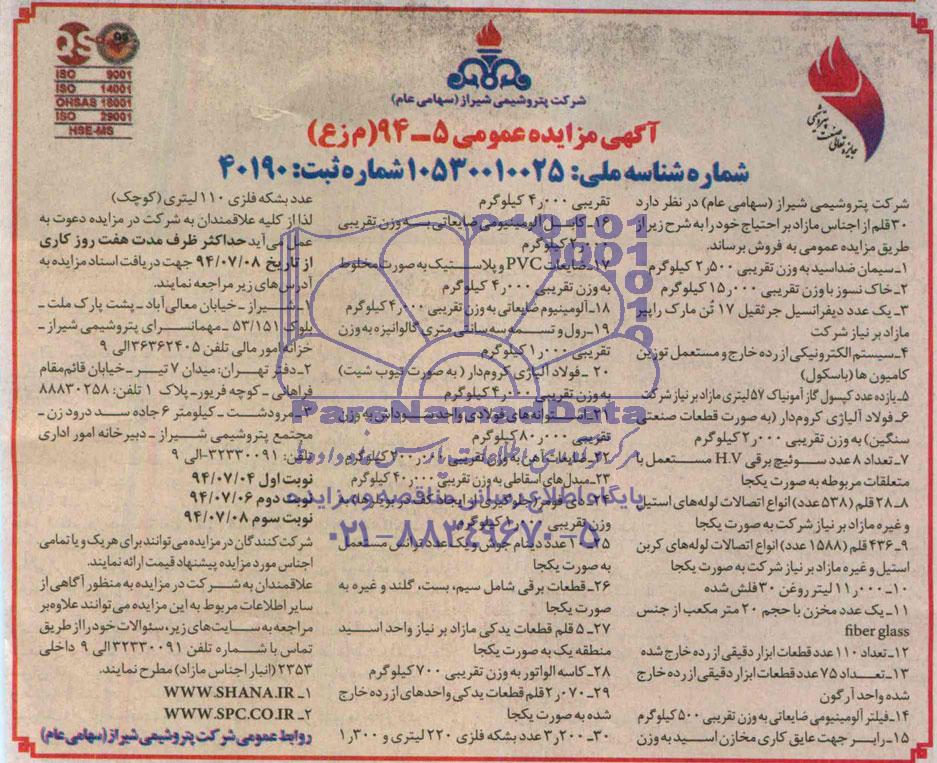 QS
ISO 9001
ISO 14001
OHSAS 18001
ISO 29001
HSE-MS
شرکت پتروشیمی شیراز (سهامی عام)
آگهی مزایده عمومی ۵ــ۹۴(م زع)
شماره شناسه ملی: ۱۰۵۳۰۰۱۰۰۲۵ شماره ثبت: ۴۰۱۹۰
شرکت پتروشیمی شیراز (سهامی عام) در نظر دارد
۳۰ قلم از اجناس مازاد بر احتیاج خود را به شرح زیر از
طریق مزایده عمومی به فروش برساند.
۱ــ سیمان ضداسید به وزن تقریبی ۲٫۵۰۰ کیلوگرم
۲ــ خاک نسوز با وزن تقریبی ۱۵٫۰۰۰ کیلوگرم
۳ــ یک عدد دیفرانسیل جرثقیل ۱۷ تُن مارک راپیر
مازاد بر نیاز شرکت
۴ــ سیستم الکترونیکی از رده خارج و مستعمل توزین
کامیون ها (باسکول)
۵ــ یازده عدد کپسول گاز آمونیاک ۵۷ لیتری مازاد بر نیاز شرکت
۶ــ فولاد آلیاژی کروم‌دار (به صورت قطعات صنعتی
سنگین) به وزن تقریبی ۲٫۰۰۰ کیلوگرم
۷ــ تعداد ۸ عدد سوئیچ برقی H.V مستعمل با
متعلقات مربوطه به صورت یکجا
۸ــ ۳۸ قلم (۵۳۸ عدد) انواع اتصالات لوله‌های استیل
و غیره مازاد بر نیاز شرکت به صورت یکجا
۹ــ ۴۳۶ قلم (۱۵۸۸ عدد) انواع اتصالات لوله‌های کربن
استیل و غیره مازاد بر نیاز شرکت به صورت یکجا
۱۰ــ ۱۱٫۰۰۰ لیتر روغن ۳۰ فلش شده
۱۱ــ یک عدد مخزن با حجم ۲۰ متر مکعب از جنس
fiber glass
۱۲ــ تعداد ۱۱۰ عدد قطعات ابزار دقیقی از رده خارج شده
۱۳ــ تعداد ۷۵ عدد قطعات ابزار دقیقی از رده خارج
شده واحد آرگون
۱۴ــ فیلتر آلومینیومی ضایعاتی به وزن تقریبی ۵۰۰ کیلوگرم
۱۵ــ رابر جهت عایق کاری مخازن اسید به وزن
تقریبی ۴٫۰۰۰ کیلوگرم
۱۶ــ کابل آلومینیومی ضایعاتی به وزن تقریبی
۲٫۰۰۰ کیلوگرم
۱۷ــ ضایعات PVC و پلاستیک به صورت مخلوط
به وزن تقریبی ۴٫۰۰۰ کیلوگرم
۱۸ــ آلومینیوم ضایعاتی به وزن تقریبی ۴٫۰۰۰ کیلوگرم
۱۹ــ رول و تسمه سه سانتی متری گالوانیزه به وزن
تقریبی ۱٫۰۰۰ کیلوگرم
۲۰ ــ فولاد آلیاژی کروم‌دار (به صورت تیوب شیت)
به وزن تقریبی ۴٫۰۰۰ کیلوگرم
۲۱ــ استوانه‌های فولادی واحد سوداش به وزن
تقریبی ۸۰٫۰۰۰ کیلوگرم
۲۲ــ ضایعات آهن به وزن تقریبی ۲۰۰٫۰۰۰ کیلوگرم
۲۳ــ مبدل های اسقاطی به وزن تقریبی ۴۰٫۰۰۰ کیلوگرم
۲۴ــ دی فومر (جلوگیری از ایجاد کف در بویلرها) به
وزن تقریبی ۱٫۰۰۰ کیلوگرم
۲۵ــ ۱۰ عدد دینام جوش و یک عدد ترانس مستعمل
به صورت یکجا
۲۶ــ قطعات برقی شامل سیم، بست، گلند و غیره به
صورت یکجا
۲۷ــ ۵ قلم قطعات یدکی مازاد بر نیاز واحد اسید
منطقه یک به صورت یکجا
۲۸ــ کاسه الواتور به وزن تقریبی ۷۰۰ کیلوگرم
۲۹ــ ۲٫۰۷۰ قلم قطعات یدکی واحدهای از رده خارج
شده به صورت یکجا
۳۰ــ ۳٫۲۰۰ عدد بشکه فلزی ۲۲۰ لیتری و ۱٫۳۰۰
عدد بشکه فلزی ۱۱۰ لیتری (کوچک)
لذا از کلیه علاقمندان به شرکت در مزایده دعوت به
عمل می‌آید حداکثر ظرف مدت هفت روز کاری
از تاریخ ۹۴/۰۷/۰۸ جهت دریافت اسناد مزایده به
آدرس‌های زیر مراجعه نمایند.
۱ــ شیراز ــ خیابان معالی‌آباد ــ پشت پارک ملت ــ
بلوک ۵۳/۱۵۱ ــ مهمانسرای پتروشیمی شیراز ــ
خزانه امور مالی تلفن ۳۶۳۶۲۴۰۵ الی ۹
۲ــ دفتر تهران: میدان ۷ تیر ــ خیابان قائم‌مقام
فراهانی ــ کوچه فریور ــ پلاک ۱ تلفن: ۸۸۸۳۰۲۵۸
۳ــ مرودشت ــ کیلومتر ۶ جاده سد درودزن ــ
مجتمع پتروشیمی شیراز ــ دبیرخانه امور اداری
تلفن: ۳۲۳۳۰۰۹۱ الی ۹
نوبت اول ۹۴/۰۷/۰۴
نوبت دوم ۹۴/۰۷/۰۶
نوبت سوم ۹۴/۰۷/۰۸
شرکت کنندگان در مزایده می‌توانند برای هر یک و یا تمامی
اجناس مورد مزایده پیشنهاد قیمت ارائه نمایند.
علاقمندان به شرکت در مزایده به منظور آگاهی از
سایر اطلاعات مربوط به این مزایده می توانند علاوه بر
مراجعه به سایت‌های زیر، سئوالات خود را از طریق
تماس با شماره تلفن ۳۲۳۳۰۰۹۱ الی ۹ داخلی
۲۳۵۳ (انبار اجناس مازاد) مطرح نمایند.
۱ــ WWW.SHANA.IR
۲ــ WWW.SPC.CO.IR
روابط عمومی شرکت پتروشیمی شیراز (سهامی عام)
ParsNamadData
پایگاه اطلاع رسانی مناقصه و مزایده
۰۲۱-۸۸۳۴۹۶۷۰-۵